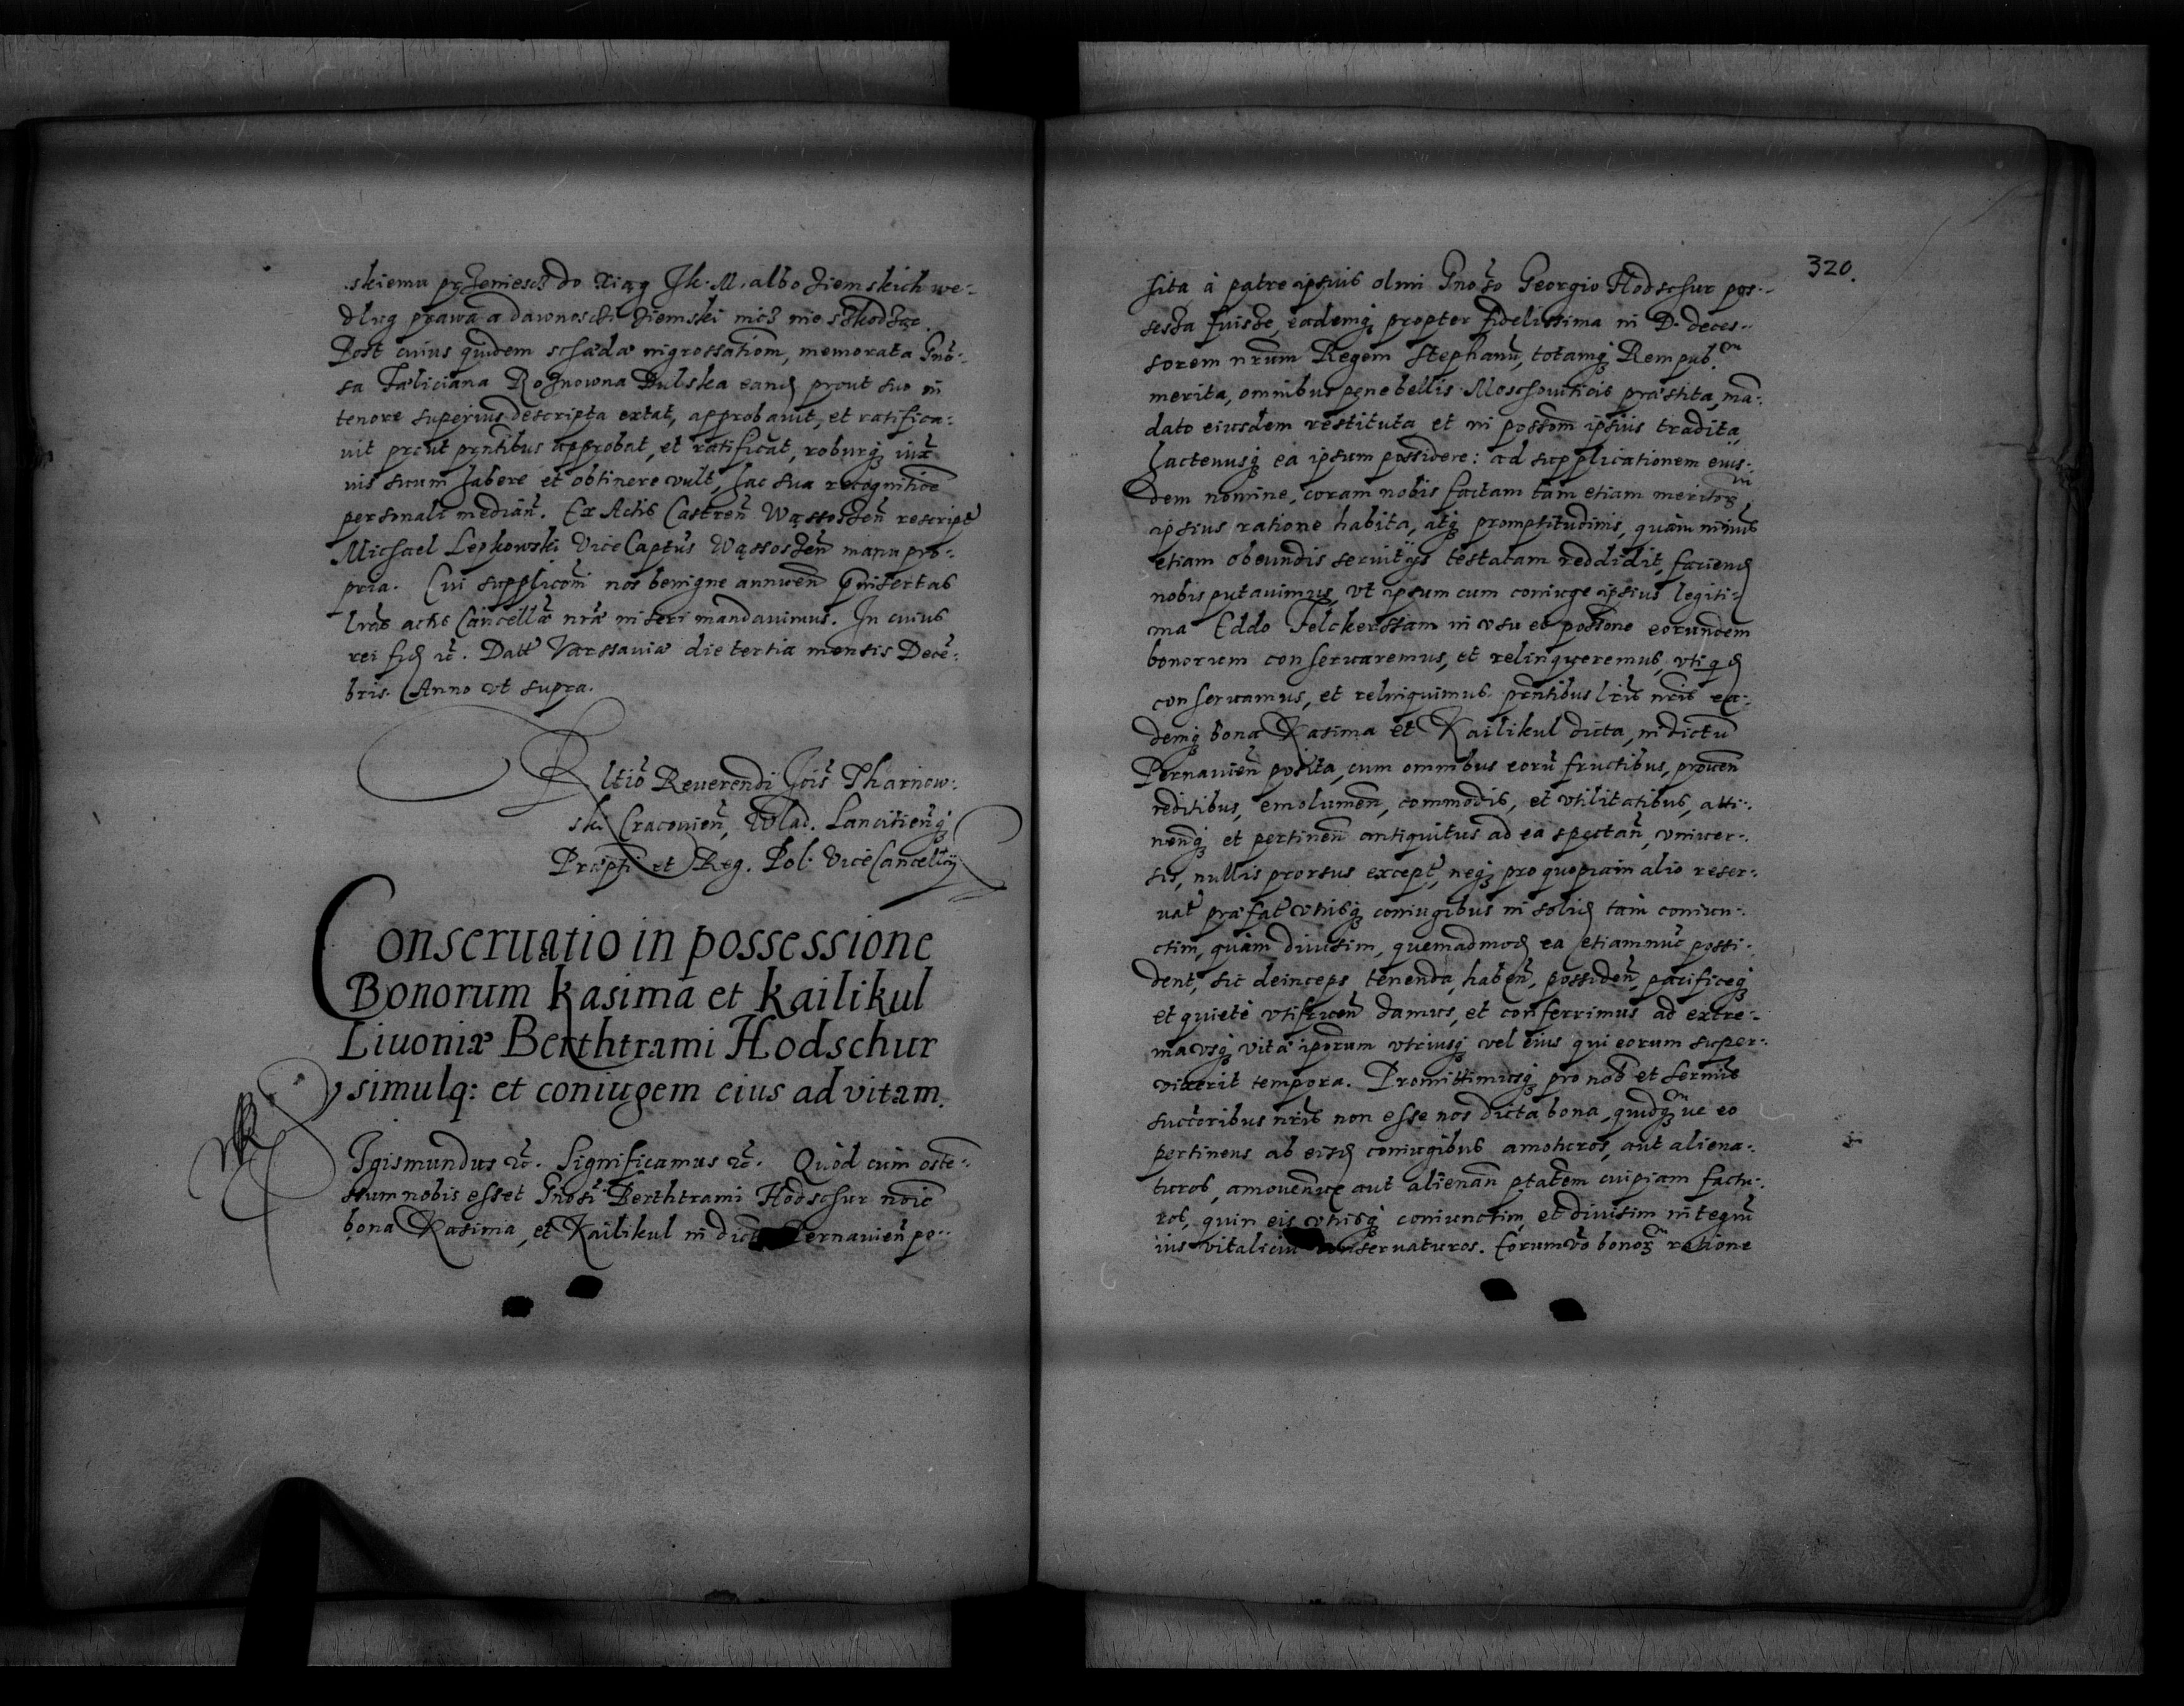 skiemu przeniescz do xiąg Jk. M. albo ziemskich we-
dlug prawa a dawnosczi ziemski nicz nie szkodząc.
Post cuius quidem schædæ ingrossationm, memorata Gnõ-
sa Fæliciana Roznowna Dulska eand prout suo in
tenore superius descripta extat, approbavit, et ratifica-
uit prout pñtibus approbat, et ratificat, roburq iux
uis suum habere et obtinere vult, hac sua recognitiõe
personali mediañ. Ex Actis Castreñ Wąssoszeñ rescript
Michael Lepkowski ViceCaptus Wąssoszeñ manu pro-
pria. Cui supplicõni nos benigne annuen̄ p̃insertas
l̃ras actis Cancellæ nr̃æ inseri mandavimus. In cuius
rei fid rc̃. Datt Varssaviæ die tertia mensis Decẽ-
bris. Anno vt supra.
Rltiõ Reuerendi Jois Tharnow-
ski Cracouieñ, Wlad. Lancitieñq
Præpti et Reg. Pol. ViceCancellrij
Conseruatio in possessione
Bonorum kasima et kailikul
Liuoniæ Berthtrami Hodschur
simulq: et coniugem eius ad vitam.
Igismundus rc̃. Significamus rc̃. Quòd cum oste-
ssum nobis esset Gnosi Berthtrami Hodschur noiẽ
bona Kasima, et Kailikul in dict Pernauieñ po-
320.
sita à patre ipsius olim Gnoso Georgio Hodschur pos-
sessa fuisse, eademq propter fidelissima in D. deces-
sorem nrum Regem Stephanũ, totamq Rempub.em
merita, omnibus pene bellis Moschouiticis præstita, mã-
dato eiusdem restituta et in possom̃ ipsius tradita,
hactenusq ea ipsum possidere: ad supplicationem eius-
dem nomine, coram nobis factam tam etiam meritorꝝ
ipsius ratione habita, atq promptitudinis, quàm in nr̃is
etiam obeundis seruitijs testatam reddidit, faciend
nobis putauimus, vt ipsum cum coniuge ipsius legiti-
ma Eddo Felckerssam in vsu et possone eorundem
bonorum conseruaremus, et relinqueremus, vti qd
conseruamus, et relinquimus pñtibus l̃ris nr̃is ea-
demq bona Kasima et Kailikul dicta, in dictũ
Pernauieñ posita, cum omnibus eorũ fructibus, prouen
reditibus, emolumen̄, commodis, et vtilitatibus, atti-
neñq et pertinen̄ antiquitus ad ea spectañ, vniuer-
sis, nullis prorsus except, neq pro quopiam alio reser-
uat præfat vtrisq coniugibus in solid tam coniun-
ctim, quàm diuisim, quemadmod ea etiamnũc possi-
dent, sic deinceps tenenda, habeñ, possideñ, pacificeq
et quietè vtifrueñ damus, et conferrimus ad extre-
ma vsq vitæ ipsorum vtriusq vel eius qui eorum super-
vixerit tempora. Promittimusq pro nob et Sermis
succoribus nr̃is non esse nos dicta bona, quidqm ue eo
pertinens ab eisd coniugibus amoturos, aut aliena-
turos, amouendiue aut alienan̄ ptatem cuipiam factu-
ros, quin eis vtrisq coniunctim, et diuisim integrũ
ius vitaliciũ conseruaturos. Eorum vo bonorꝝ ratione